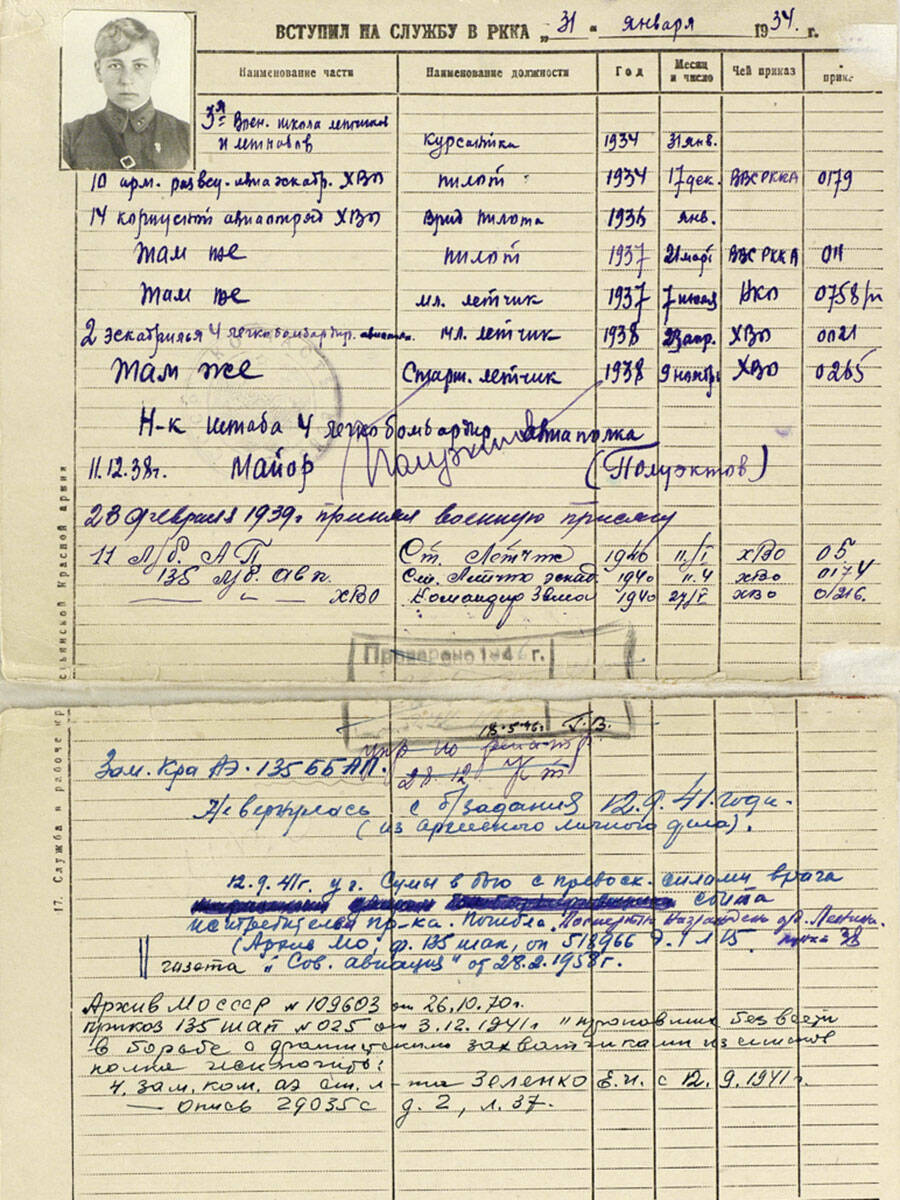 ВСТУПИЛ НА СЛУЖБУ В РККА „31" января 1934 г.
Наименование части Наименование должности Год Месяц и число Чей приказ прика
3я Воен. школа летчиков
и летнабов курсантка 1934 31 янв.
10 арм. развед. авиаэскадр. ХВО пилот 1934 17 дек. ВВС РККА 0179
14 корпусной авиаотряд ХВО Врид пилота 1936 янв.
Там же пилот 1937 21 март ВВС РККА 011
Там же мл. летчик 1937 7 июля НКО 0758/п
2 эскадрилья 4 легкобомбардир. мл. летчик 1938 23 апр. ХВО 0021
Там же Старш. летчик 1938 9 ноября ХВО 0265
Н-к штаба 4 легкобомбардир авиаполка
11.12.38г. Майор (Полуэктов)
23 февраля 1939г принял военную присягу
11 л/б. АП Ст. Летчик 1940 11/I ХВО 05
135 л/б. авп. Ст. Летчик эскад. 1940 11.4 ХВО 0174
— „ — ХВО Командир Звена 1940 ХВО 0216.
Проверено 194 г.
18.5.46. Г.В.
28.12
Зам. К-ра АЭ. 135 ББАП.
Не вернулась с б/задания 12.9.41. года.
(из архивского личного дела).
12.9.41г. у г. Сумы в бою с превосх. силами врага
сбита
истребителем пр-ка. Погибла.
(Архив МО, ф. 135 шап, оп 518966 д. 1 л 15.
газета "Сов. авиация" от 28.2.1958г.
Архив МО СССР № 109603 от 26.10.70г.
приказ 135 шап № 025 от 3.12.1941г "пропавших без вести
в борьбе с фашистскими захватчиками из списков
полка исключить:
4. Зам. ком. аэ ст. л-та Зеленко Е.И. с 12.9.1941г.
— опись 29035с д. 2, л. 37.
17. Служба в рабоче-кр
стьянской Красной армии